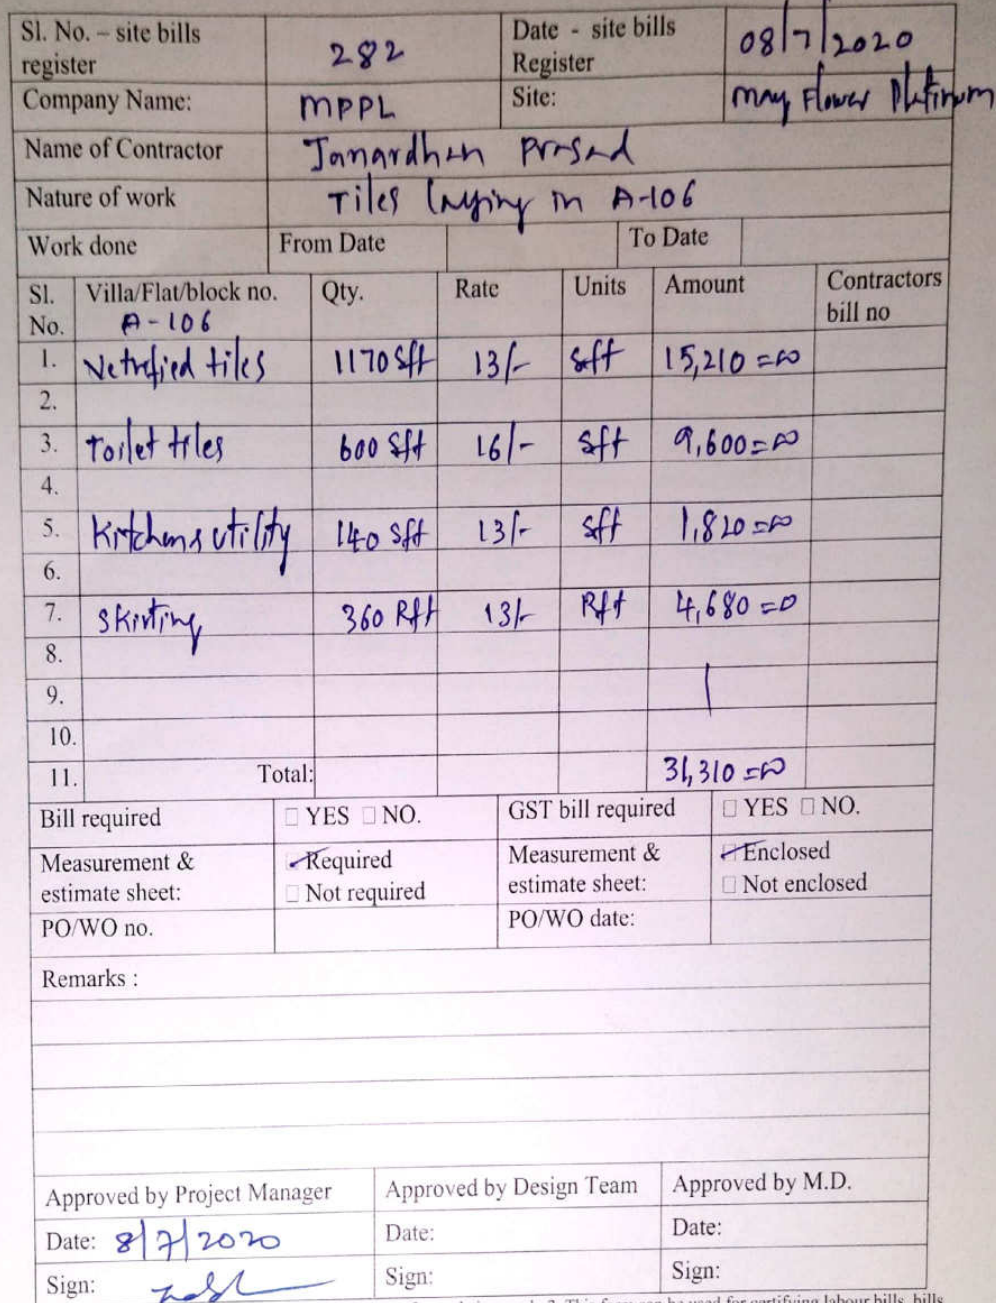 Sl. No. – site bills register 282 Date - site bills Register 08/7/2020
Company Name: MPPL Site: May Flower Platinum
Name of Contractor Janardhan Prasad
Nature of work Tiles laying in A-106
Work done From Date To Date
Sl. No. Villa/Flat/block no. A-106 Qty. Rate Units Amount Contractors bill no
1. Vetrefied tiles 1170 Sft 13/- Sft 15,210=00
2.
3. Toilet tiles 600 Sft 16/- Sft 9,600=00
4.
5. Kitchen & utility 140 Sft 13/- Sft 1,820=00
6.
7. Skirting 360 Rft 13/- Rft 4,680=0
8.
9.
10.
11. Total: 31,310=00
Bill required □ YES □ NO. GST bill required □ YES □ NO.
Measurement & estimate sheet: ✓ Required □ Not required Measurement & estimate sheet: ✓ Enclosed □ Not enclosed
PO/WO no. PO/WO date:
Remarks :
Approved by Project Manager Approved by Design Team Approved by M.D.
Date: 8/7/2020 Date: Date:
Sign: Sign: Sign:
This form can be used for certifying labour bills, bills